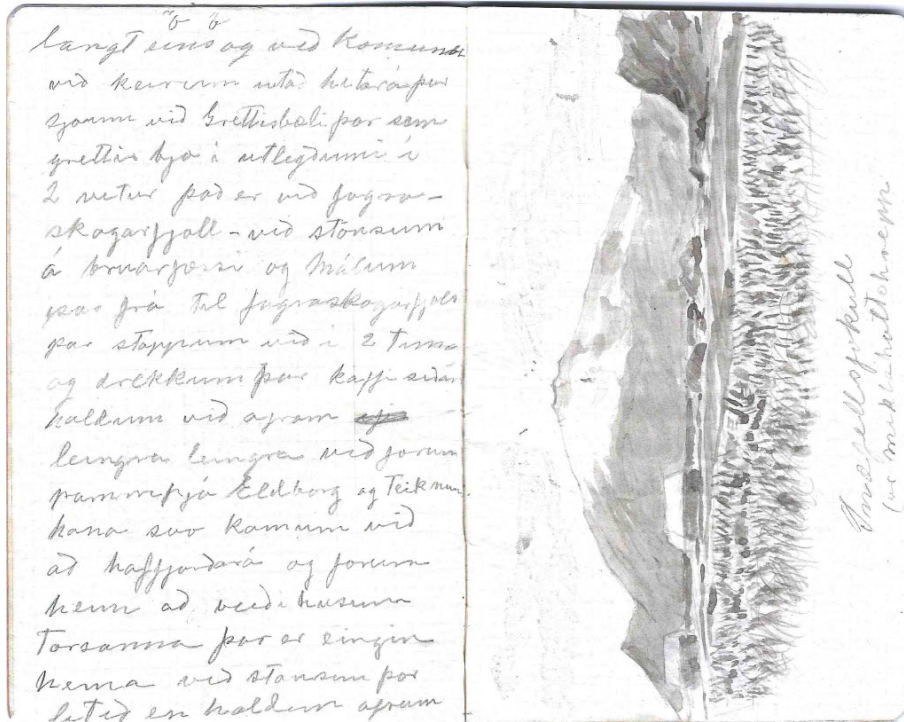 langt eins og við komum
við keirum utað hitará þar
sjoum við Grettisbæli þar sem
grettir bjo i utlegdinni i
2 vetur það er við fagra-
skogarfjall - við stonsum
á bruarfossi og Málum
þar frá til fagraskogarfjalls
þar stoppum við i 2 Tima
og drekkum þar kaffi siðan
haldum við afram
leingra leingra við forum
framm hjá Eldborg og Teiknum
hana svo komum við
að haffjarðará og forum
heim að veiði husinu
Torsanna þar er eingin
heima við stonsum þar
litið en haldum afram
Snæfellsjökull
(ur miklaholtshreppi